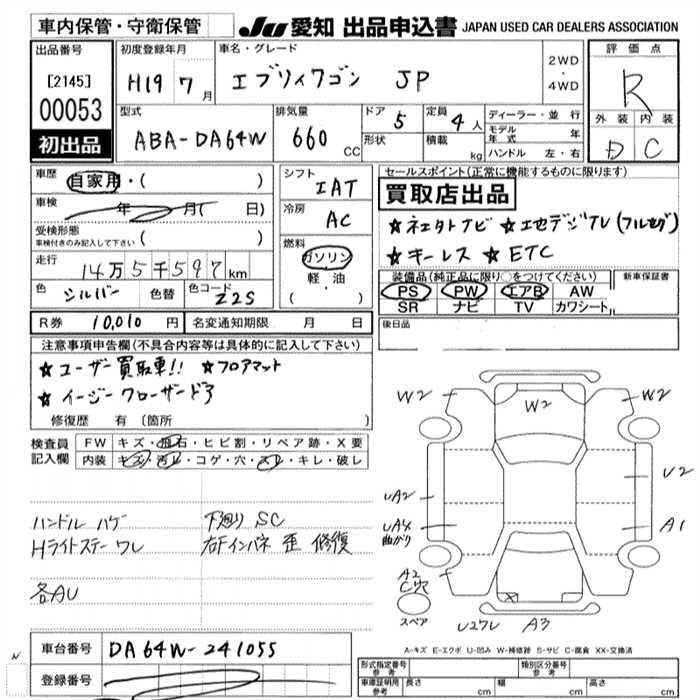 車内保管・守衛保管
JU 愛知 出品申込書 JAPAN USED CAR DEALERS ASSOCIATION
出品番号
[2145]
00053
初出品
初度登録年月
H19 7月
車名・グレード
エブリィワゴン JP
2WD
・
4WD
評価点
R
外装 内装
D C
型式
ABA-DA64W
排気量
660 CC
ドア 5
形状
定員 4人
積載 kg
ディーラー・並行
モデル年式 年
ハンドル 左・右
車歴
自家用・( )
車検
年 月( 日)
受検形態
車検付きのみ記入して下さい ( )
走行
14万5千597km
色 シルバー 色替 色コード Z2S
シフト
IAT
冷房
AC
燃料
ガソリン
軽油
( )
セールスポイント(正常に機能するものに限ります)
買取店出品
★ネエタトナビ ★エセデジTV(フルセグ)
★キーレス ★ETC
装備品(純正品に限り○をつけてください)
PS PW エアB AW
SR ナビ TV カワシート
新車保証書
後日品
R券 10,010 円 名変通知期限 月 日
注意事項申告欄(不具合内容等は具体的に記入して下さい)
★ユーザー買取車!! ★フロアマット
★イージークローザードア
修復歴 有 〔箇所
検査員記入欄
FW キズ・飛石・ヒビ割・リペア跡・X要
内装 キズ・汚レ・コゲ・穴・スレ・キレ・破レ
ハンドル ハゲ 下廻り SC
Hライトステー ワレ 右Fインパネ 歪 修復
各AU
W2 W2 W2
U2
UA2
UA4
曲がり
A1
A2
C穴
スペア
U2ワレ A3
A-キズ E-エクボ U-凹み W-補修跡 S-サビ C-腐食 XX-交換済
車台番号 DA64W-241055
登録番号
型式指定番号
参考
類別区分番号
参考
車庫証明用
参考
長さ cm 幅 cm 高さ cm